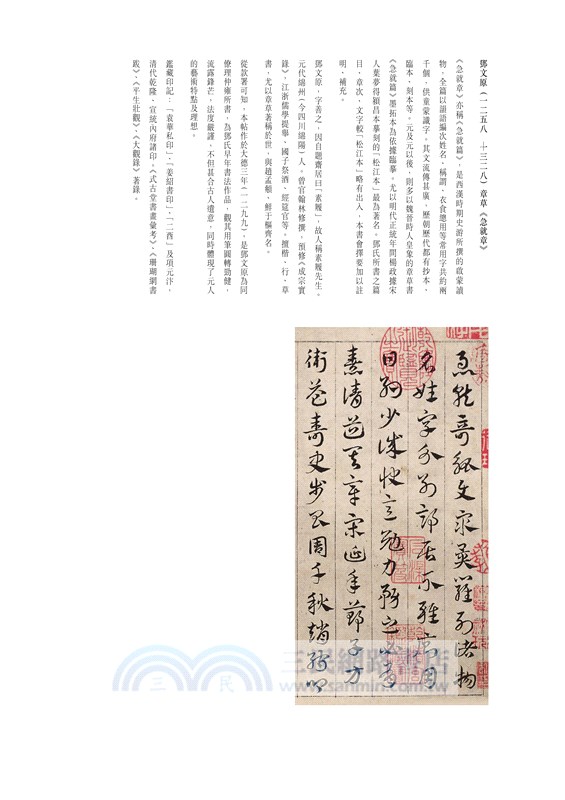 鄧文原（一二五八－一三二八）章草《急就章》
《急就章》亦稱《急就篇》，是西漢時期史游所撰的啟蒙讀
物，全篇以韻語編次姓名、稱謂、衣食總用等常用字共約兩
千個，供童蒙識字。其文流傳甚廣，歷朝歷代都有抄本、
臨本、刻本等。元及元以後，則多以魏晉時人皇象的章草書
《急就篇》墨拓本為依據臨摹，尤以明代正統年間楊政據宋
人葉夢得潁昌本摹刻的「松江本」最為著名。鄧氏所書之篇
目、章次、文字較「松江本」略有出入，本書會擇要加以註
明、補充。
鄧文原，字善之，因自題齋居曰「素履」，故人稱素履先生。
元代綿州（今四川綿陽）人，曾官翰林修撰，預修《成宗實
錄》，江浙儒學提舉、國子祭酒、經筵官等。擅楷、行、草
書，尤以章草著稱於世，與趙孟頫、鮮于樞齊名。
從款署可知，本帖作於大德三年（一二九九），是鄧文原為同
僚理仲雍所書，為鄧氏早年書法作品。觀其用筆圓轉勁健，
流露鋒芒，法度嚴謹，不但甚合古人遺意，同時體現了元人
的藝術特點及理想。
鑑藏印記：「袁華私印」、「姜紹書印」、「二酉」及項元汴，
清代乾隆、宣統內府諸印。《式古堂書畫彙考》、《珊瑚網書
跋》、《平生壯觀》、《大觀錄》著錄。
急就奇觚與眾異羅列諸物
名姓字分別部居不雜廁用
日約少誠快意勉力務之必有
憙請道其章宋延年鄭子方
衛益壽史步昌周千秋趙孺卿
三民網路書店
www.sanmin.com.tw
三 民